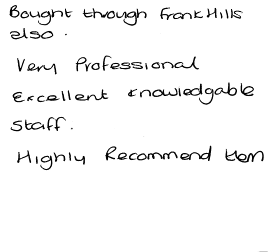 Bought through Frank Hills
also.
Very Professional
Excellent knowledgable
Staff.
Highly Recommend them